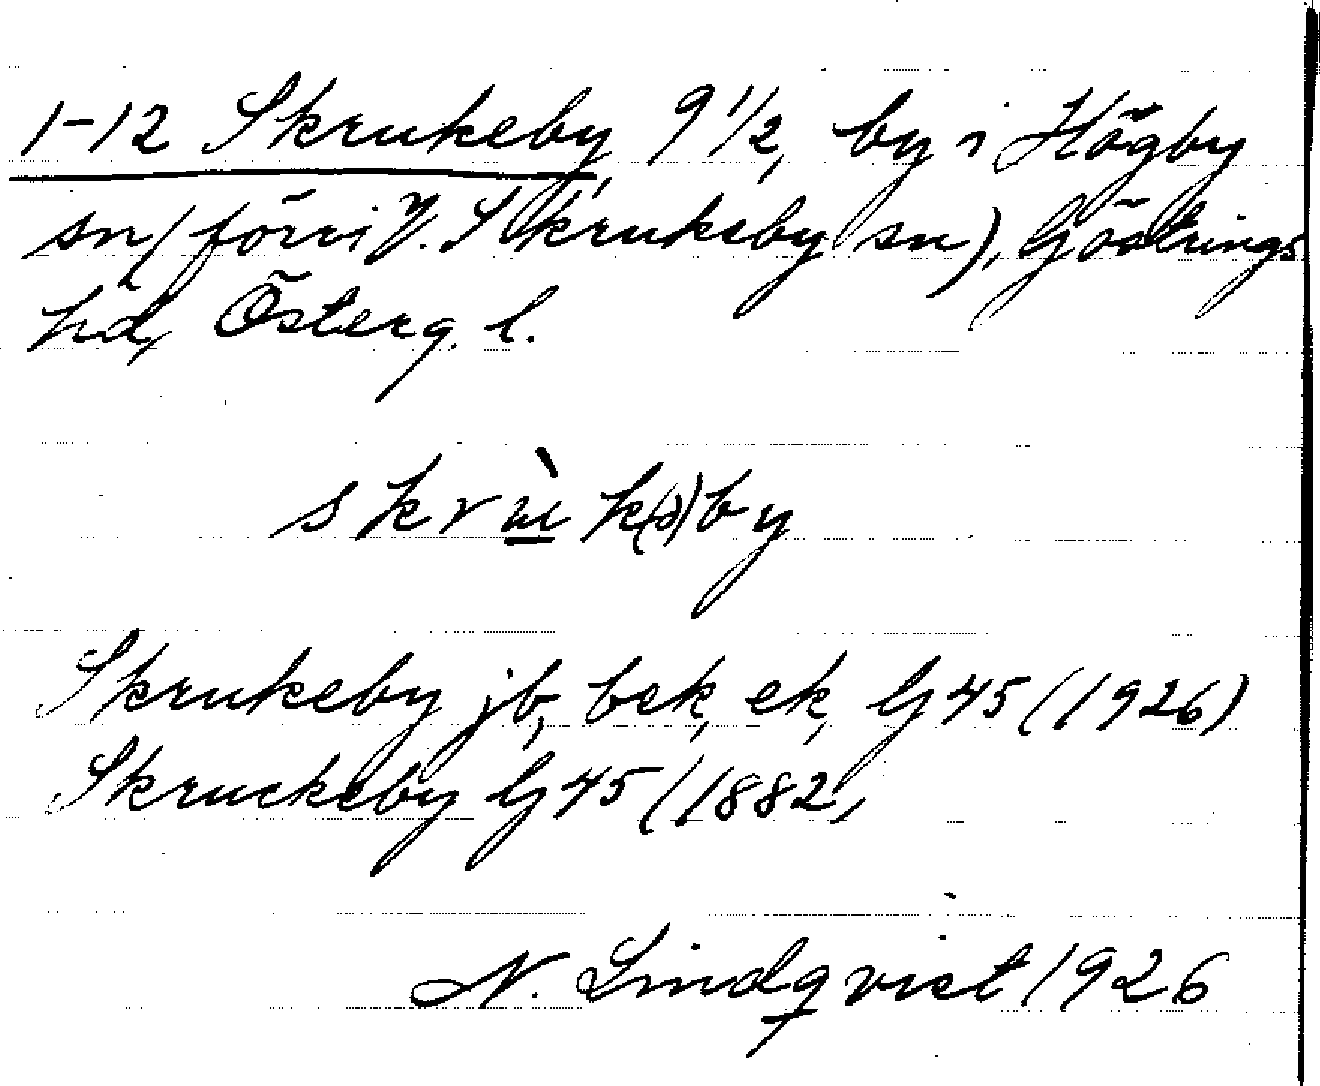 1-12 Skrukeby 9 1/2, by i Högby
sn (förr i V. Skrukeby sn), Göstrings
hd, Österg. l.
skrùk(ə)by
Skrukeby jb, bek, ek, Gj 45 (1926)
Skruckeby Gj 45 (1882,
N. Lindqvist 1926